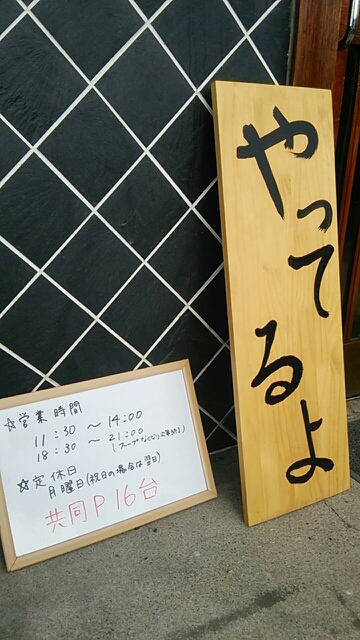 やってるよ
☆営業時間
11:30～14:00
18:30～21:00
(スープなくなり次第終了)
☆定休日
月曜日(祝日の場合は翌日)
共同P16台